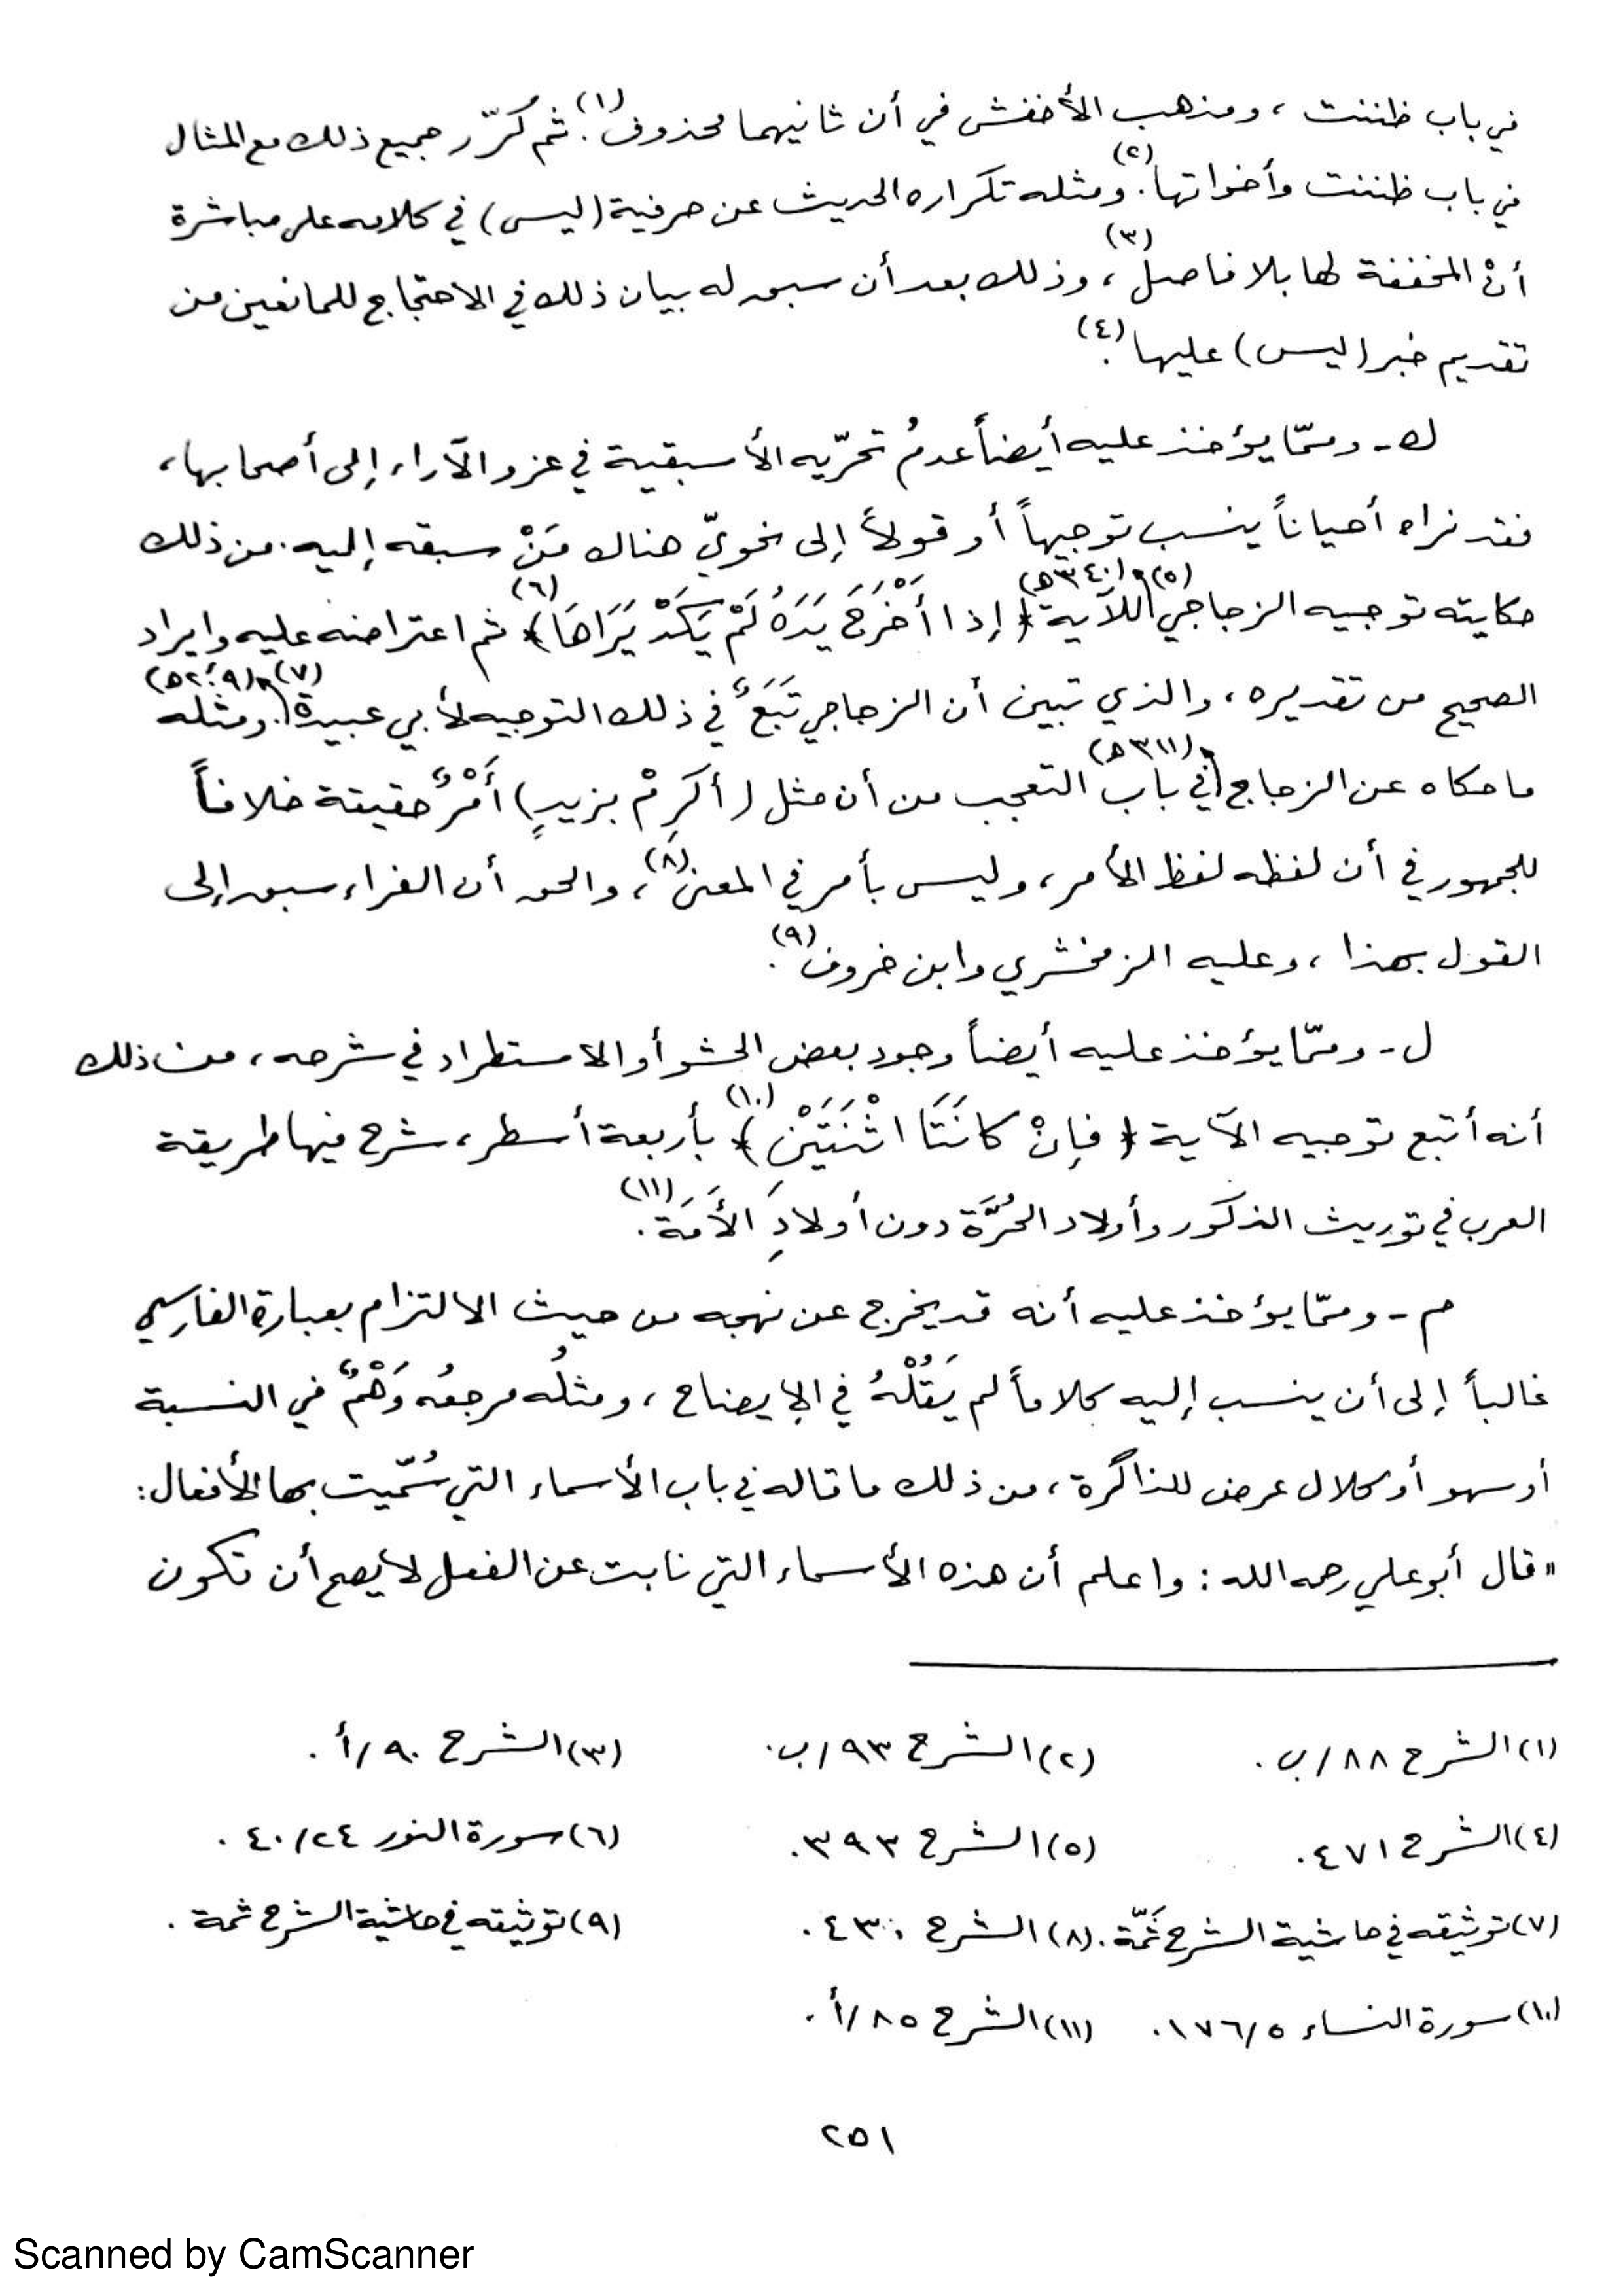 في باب ظننت ، ومذهب الأخفش في أن ثانيهما محذوف(١). ثم كرّر جميع ذلك مع المثال
في باب ظننت وأخواتها(٢). ومثله تكراره الحديث عن حرفية (ليس) في كلامه على مباشرة
أنْ المخففة لها بلا فاصل(٣)، وذلك بعد أن سبق له بيان ذلك في الاحتجاج للمانعين من
تقديم خبر (ليس) عليها(٤).
ك - وممّا يؤخذ عليه أيضاً عدمُ تحرّيه الأسبقية في عزو الآراء إلى أصحابها،
فقد نراه أحياناً ينسب توجيهاً أو قولاً إلى نحويّ هناك مَنْ سبقه إليه. من ذلك
حكايته توجيه الزجاجي (٣٤٠هـ)(٥) للآية ﴿ إذا أَخْرَجَ يَدَهُ لَمْ يَكَدْ يَرَاهَا ﴾(٦) ثم اعتراضه عليه وإيراد
الصحيح من تقديره ، والذي تبين أن الزجاجي تَبَعٌ في ذلك التوجيه لأبي عبيدة (٢٠٩هـ)(٧). ومثله
ما حكاه عن الزجاج (٣١١هـ) في باب التعجب من أن مثل (أكرِمْ بزيدٍ) أَمْرٌ حقيقة خلافاً
للجمهور في أن لفظه لفظ الأمر، وليس بأمر في المعنى(٨)، والحق أن الفراء سبق إلى
القول بهذا ، وعليه الزمخشري وابن خروف(٩).
ل - وممّا يؤخذ عليه أيضاً وجود بعض الحشو أو الاستطراد في شرحه ، من ذلك
أنه أتبع توجيه الآية ﴿ فإِنْ كانَتَا اثْنَتَيْنِ ﴾(١٠) بأربعة أسطر، شرح فيها طريقة
العرب في توريث الذكور وأولاد الحُرَّة دون أولادِ الأَمَة(١١).
م - وممّا يؤخذ عليه أنه قد يخرج عن نهجه من حيث الالتزام بعبارة الفارسي
غالباً إلى أن ينسب إليه كلاماً لم يَقُلْهُ في الإيضاح ، ومثلُه مرجعُه وَهْمٌ في النسبة
أو سهو أو كلال عرض للذاكرة ، من ذلك ما قاله في باب الأسماء التي سُمّيت بها الأفعال:
"قال أبو علي رحمه الله : واعلم أن هذه الأسماء التي نابت عن الفعل لا يصح أن تكون
(١) الشرح ٨٨/ب . (٢) الشرح ٩٣/ب. (٣) الشرح ٩٠/أ .
(٤) الشرح ٤٧١. (٥) الشرح ٣٩٣. (٦) سورة النور ٤٠/٢٤ .
(٧) توثيقه في حاشية الشرح ثَمّة. (٨) الشرح ٤٣٠ . (٩) توثيقه في حاشية الشرح ثمة .
(١٠) سورة النساء ١٧٦/٥. (١١) الشرح ٨٥/أ .
٢٥١
Scanned by CamScanner